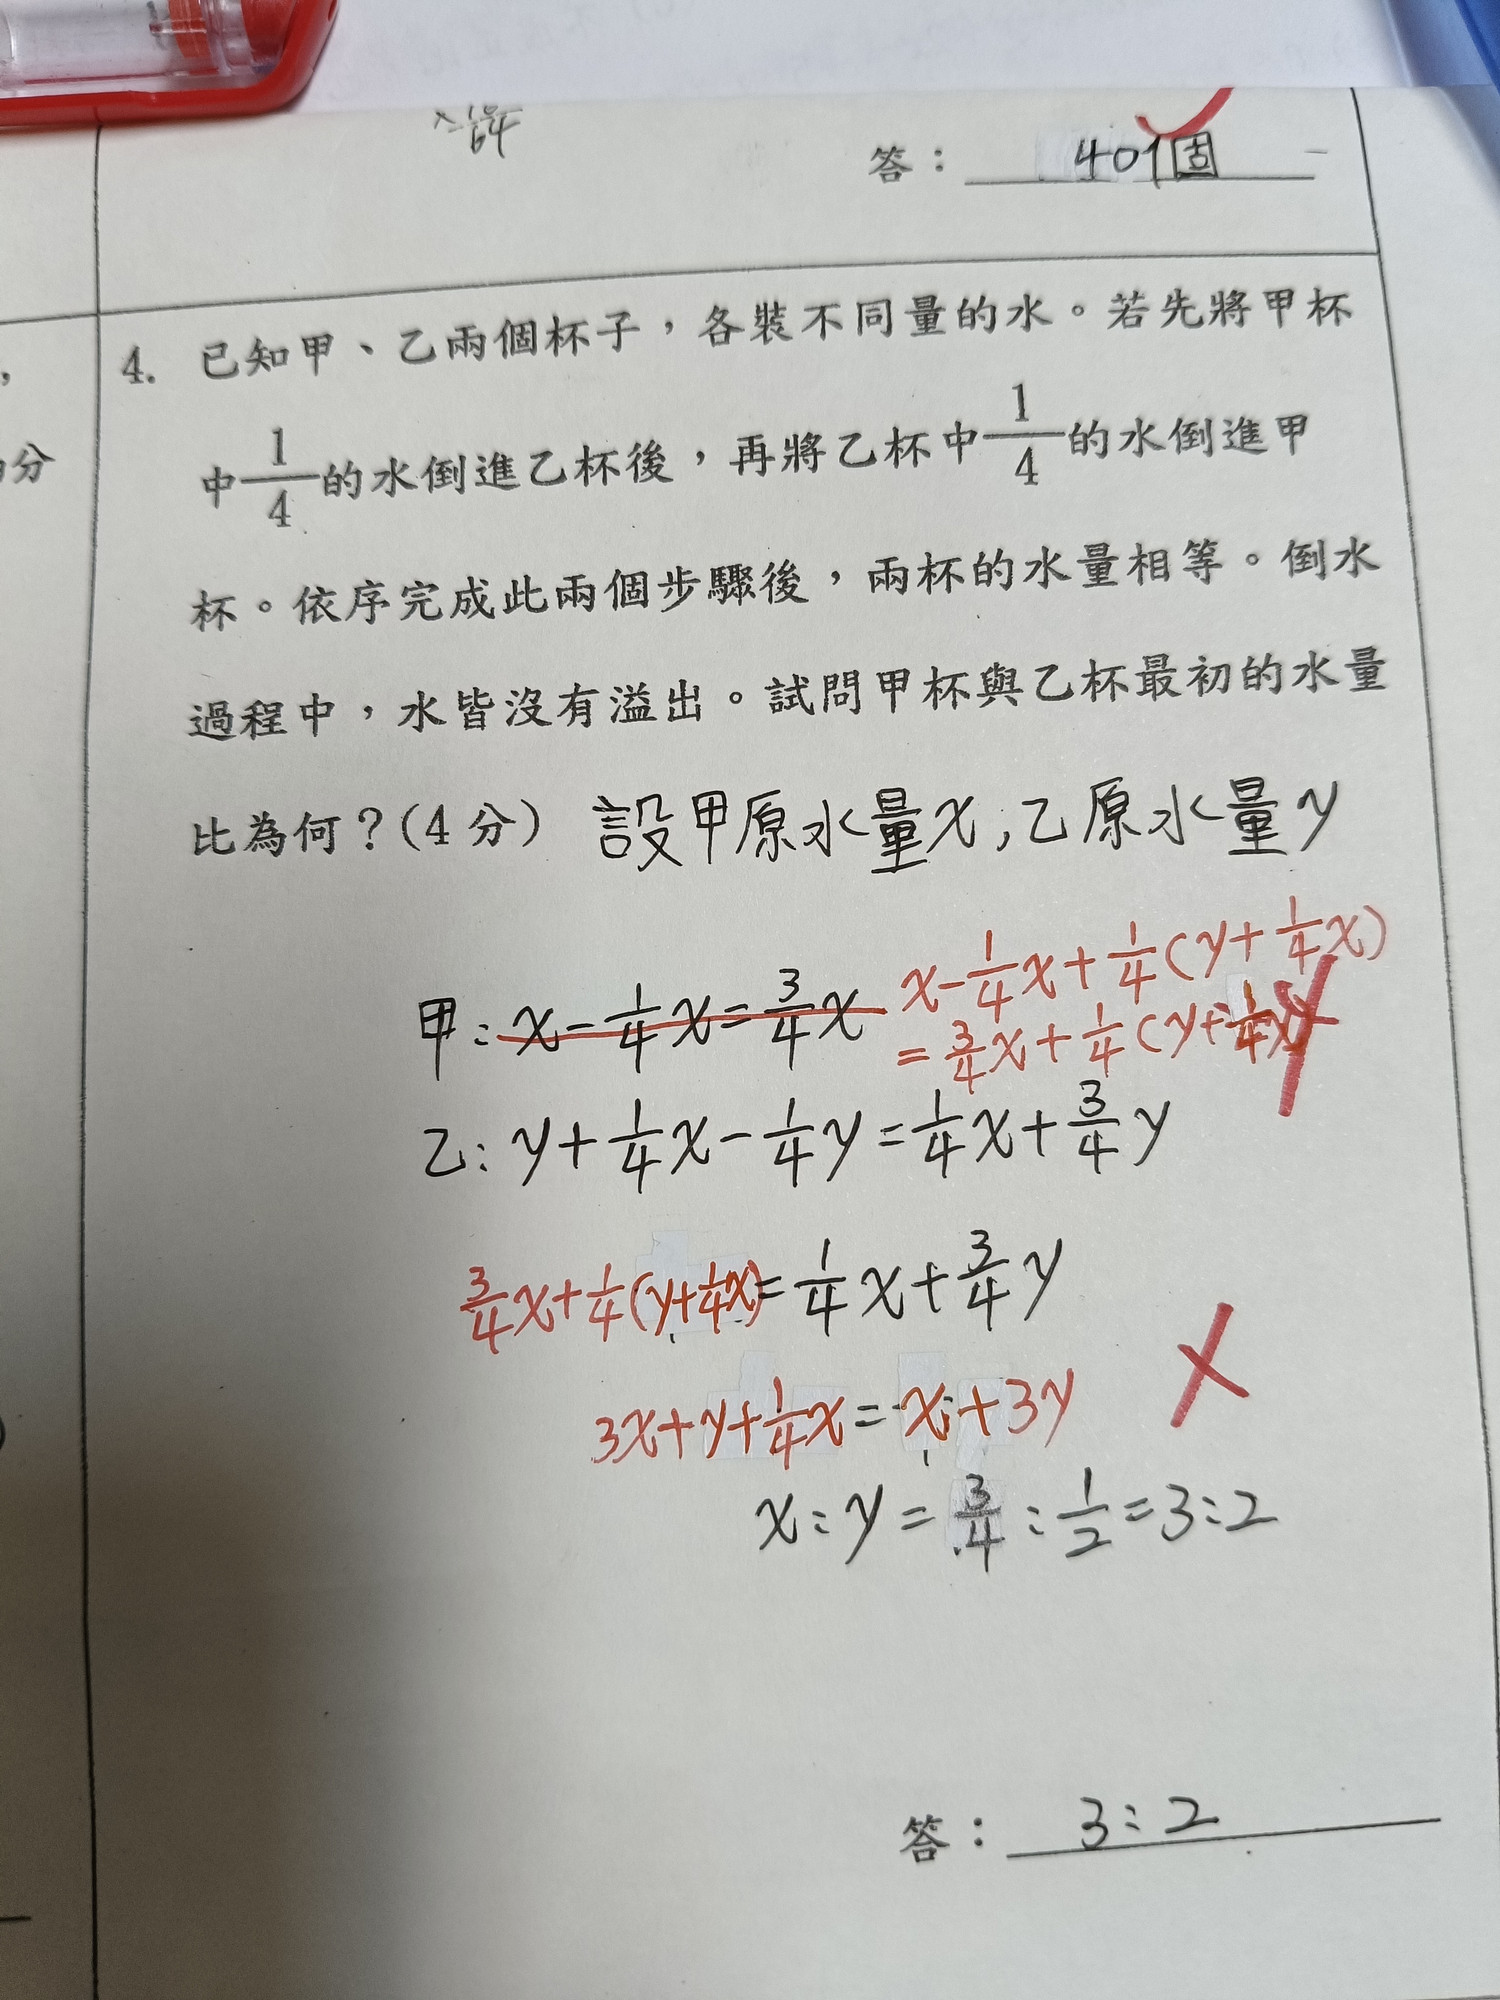 答：401個
4. 已知甲、乙兩個杯子，各裝不同量的水。若先將甲杯
中1/4的水倒進乙杯後，再將乙杯中1/4的水倒進甲
杯。依序完成此兩個步驟後，兩杯的水量相等。倒水
過程中，水皆沒有溢出。試問甲杯與乙杯最初的水量
比為何？(4分) 設甲原水量x，乙原水量y
甲：x-1/4x=3/4x x-1/4x+1/4(y+1/4x)
=3/4x+1/4(y+1/4x)
乙：y+1/4x-1/4y=1/4x+3/4y
3/4x+1/4(y+1/4x)=1/4x+3/4y
3x+y+1/4x=x+3y
x:y=3/4:1/2=3:2
答：3:2
分